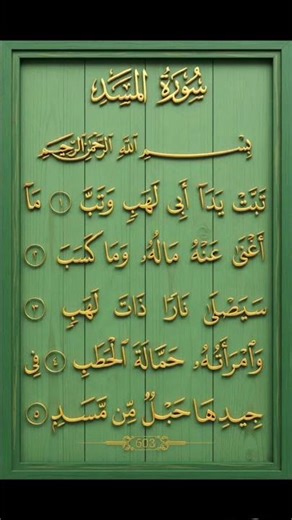 سُورَةُ المَسَدِ
بِسْمِ اللَّهِ الرَّحْمَٰنِ الرَّحِيمِ
تَبَّتْ يَدَآ أَبِى لَهَبٍ وَتَبَّ ١ مَآ
أَغْنَىٰ عَنْهُ مَالُهُۥ وَمَا كَسَبَ ٢
سَيَصْلَىٰ نَارًا ذَاتَ لَهَبٍ ٣
وَٱمْرَأَتُهُۥ حَمَّالَةَ ٱلْحَطَبِ ٤ فِى
جِيدِهَا حَبْلٌ مِّن مَّسَدٍۭ ٥
603